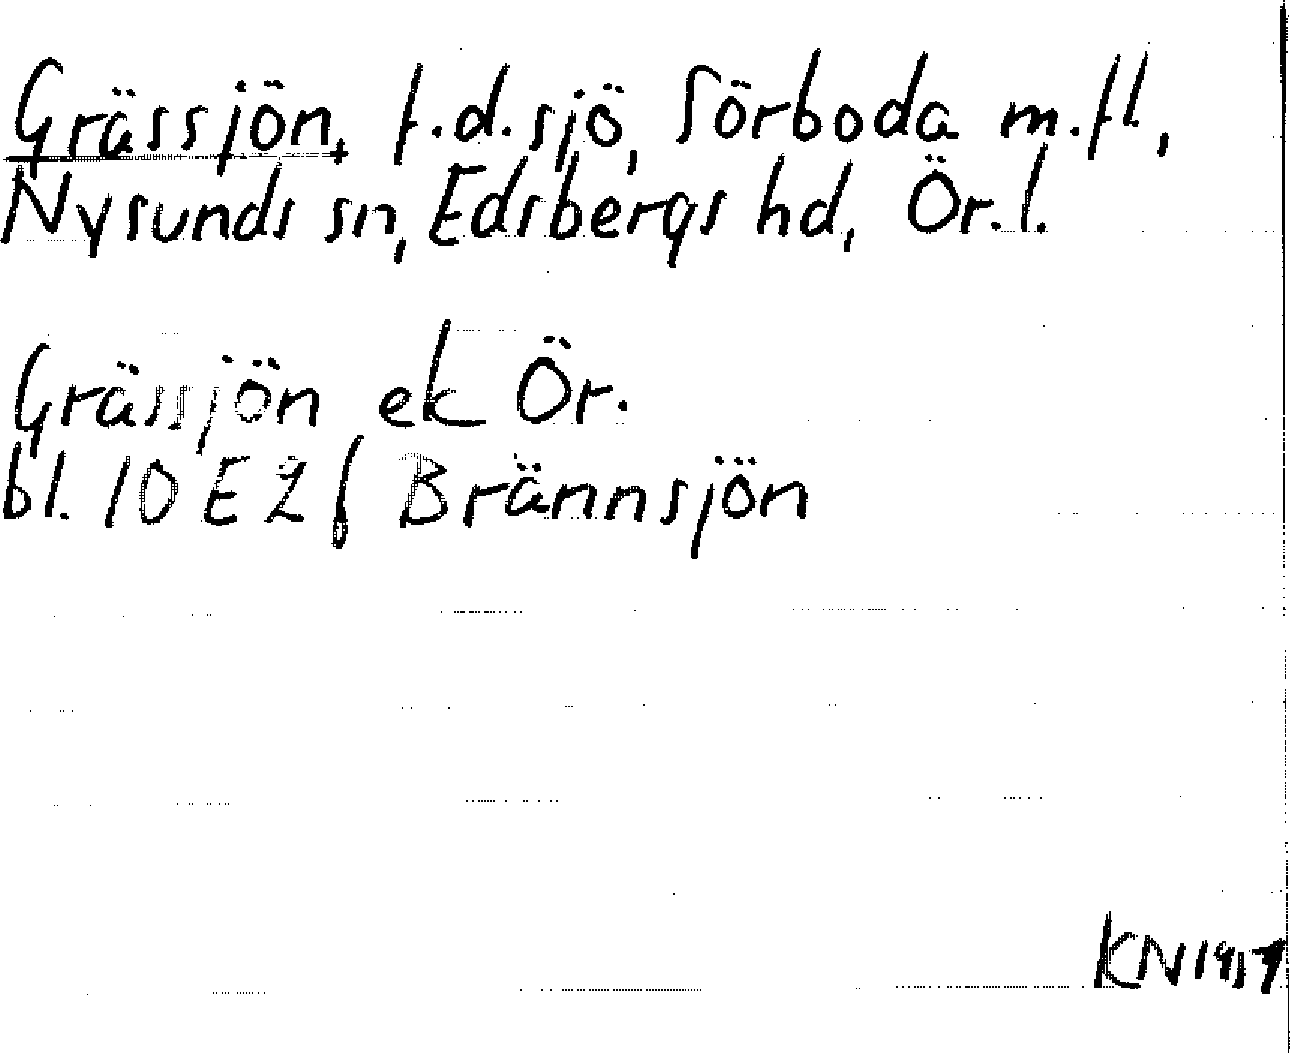 Grässjön, f.d. sjö, Sörboda m.fl.,
Nysunds sn, Edsbergs hd, Ör. l.
Grässjön ek Ör.
bl. 10 E 2 f Brännsjön
KN